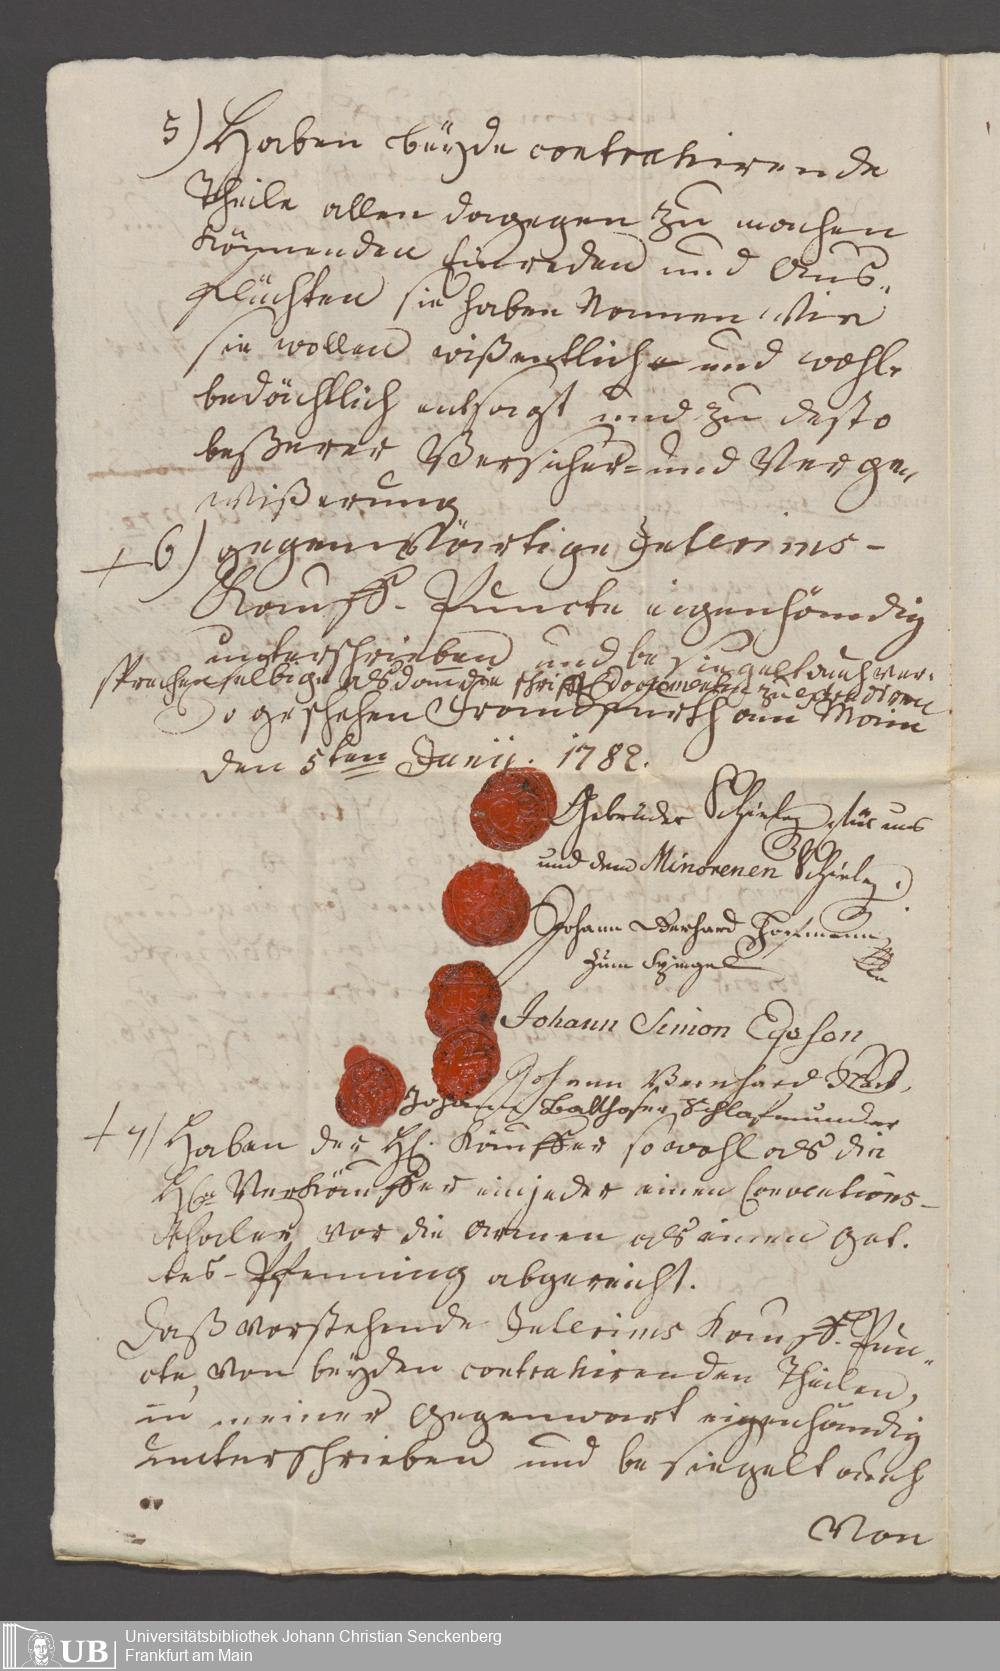 5) Haben beÿde contrahirende
Theile allen dagegen zu machen
könnenden Einreden und Aus-
flüchten sie haben Nammen wie
sie wollen wißentlich und wohl-
bedächtlich entsagt und zu desto
beßerer Versicher- und Verge-
wißerung
+ 6) gegenwärtige Interims-
Kauff-Puncte eigenhändig
unterschrieben und besiegelt auch ver-
sprechen selbige alsdann die Documenten zu
So geschehen Franckfurth am Maÿn
den 5ten Junii. 1782.
Gebrüder Schieler für uns
und dem Minorenen Schieler.
Johann Gerhard Hofmann
zum Spiegel
Johann Simon
Johann Bernhard
Johann Balthaser Schlafmunder
+ 7) Haben der H. Käuffer sowohl als die
H. Verkäuffer ein jeder einen Conventions-
thaler vor die Armen als einen Got-
tes-Pfenning abgereicht.
Daß vorstehende Interims Kauff-Pun-
cte, von beÿden contrahirenden Theilen,
in meiner Gegenwart eigenhändig
unterschrieben und besiegelt auch
von
UB
Universitätsbibliothek Johann Christian Senckenberg
Frankfurt am Main